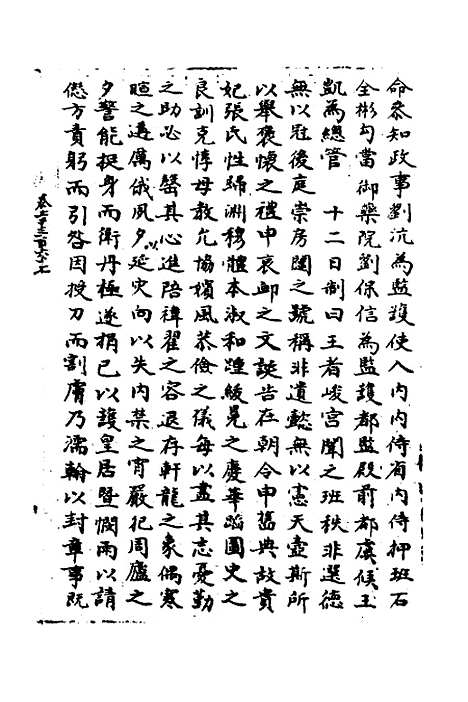 命叅知政事劉沆為監護使入内内侍省内侍押班石
全彬勾當御藥院劉保信為監護都監殿前都虞候王
凱為總管　十二日制曰王者峻宮闈之班秩非選德
無以冠後庭崇房闥之號稱非遺懿無以憲天壼斯所
以舉褒懷之禮申哀卹之文誕告在朝令申舊典故貴
妃張氏性歸淵穆體本淑和踵綏晃之慶華蹈圖史之
良訓克惇母教允協嬪風恭儉之儀每以盡其志憂勤
之助必以罄其心進陪褘翟之容退存軒龍之象偶寒
暄之遘厲俄風夕以延灾向以失内禁之宵嚴犯周廬之
夕警能挺身而衛丹極遂捐已以護皇居暨憫雨以請
僁方責躬而引咎因授刀而割膚乃濡翰以封章事既